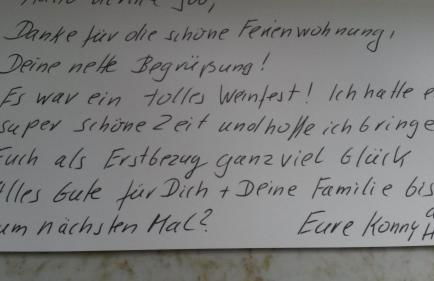 Danke für die schöne Ferienwohnung,
Deine nette Begrüßung!
Es war ein tolles Weinfest! Ich hatte
super schöne Zeit und hoffe ich bringe
Euch als Erstbezug ganz viel Glück
Alles Gute für Dich + Deine Familie bis
zum nächsten Mal? Eure Konny